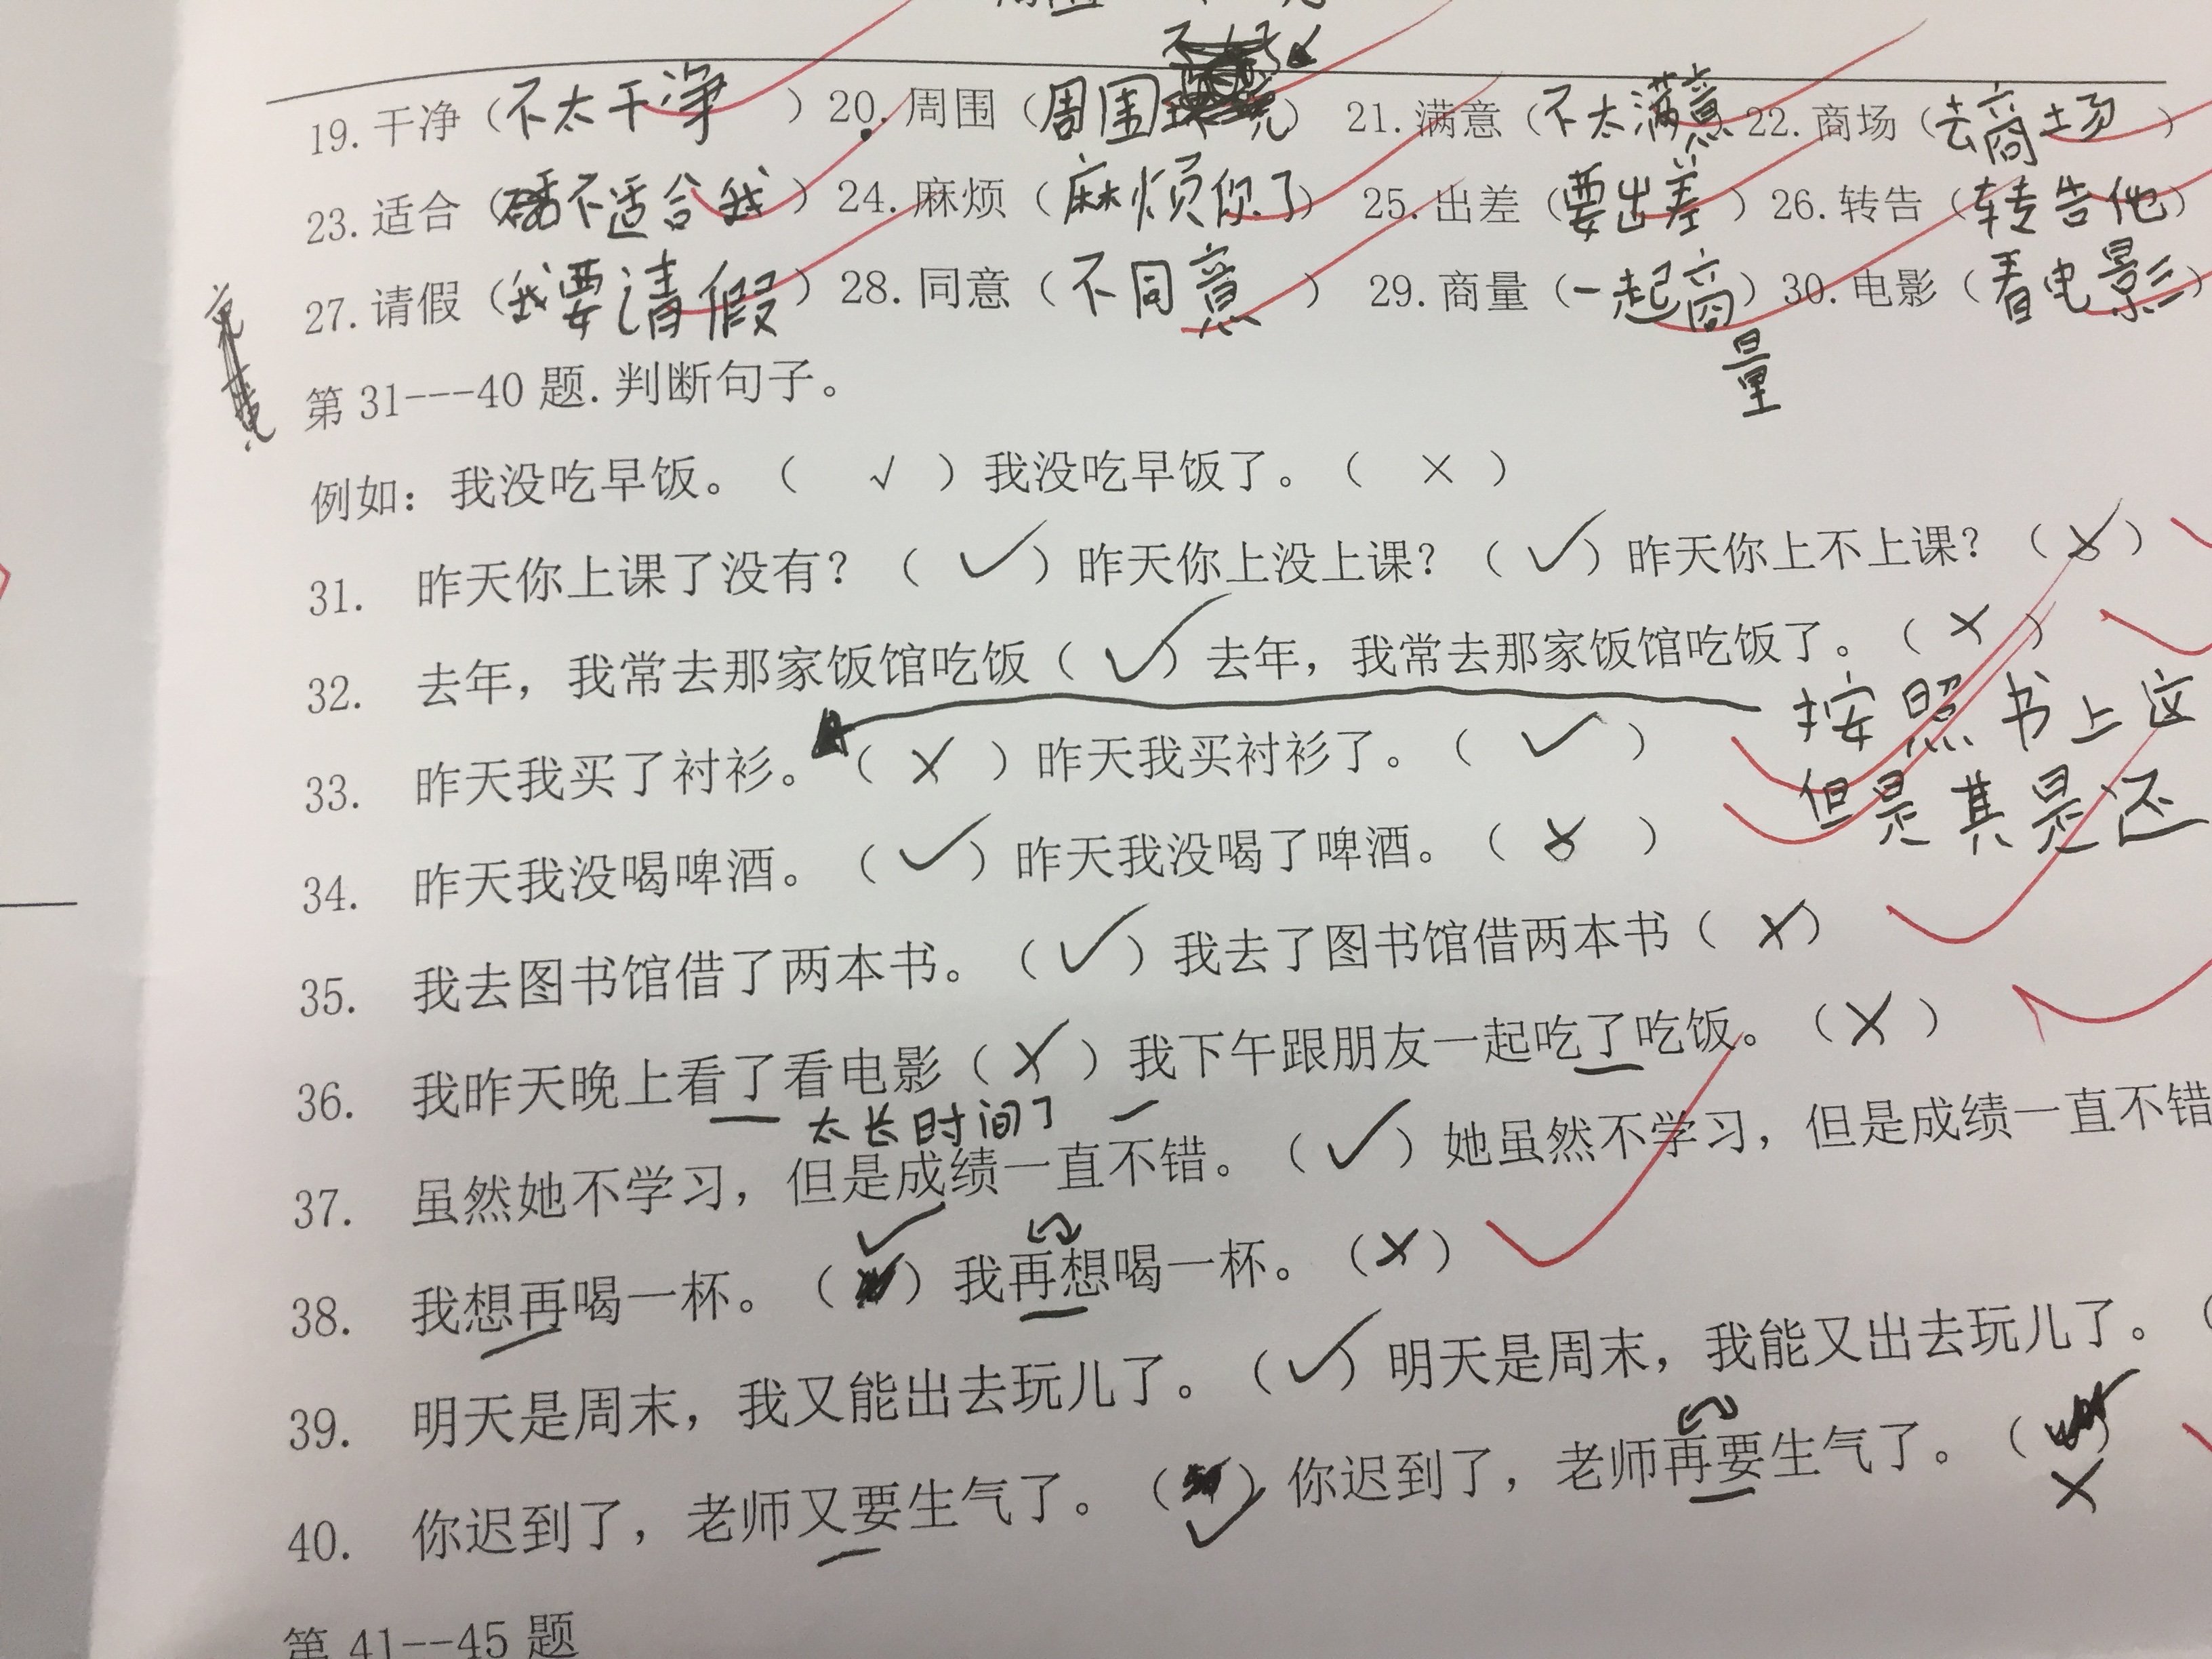 19. 干净（不太干净）20. 周围（周围）21. 满意（不太满意）22. 商场（去商场）
23. 适合（不适合我）24. 麻烦（麻烦你了）25. 出差（要出差）26. 转告（转告他）
27. 请假（我要请假）28. 同意（不同意）29. 商量（一起商量）30. 电影（看电影）
第 31---40 题. 判断句子。
例如：我没吃早饭。（ √ ）我没吃早饭了。（ × ）
31. 昨天你上课了没有？（ ✓ ）昨天你上没上课？（ ✓ ）昨天你上不上课？（ × ）
32. 去年，我常去那家饭馆吃饭（ ✓ ）去年，我常去那家饭馆吃饭了。（ × ）
按照书上这
33. 昨天我买了衬衫。（ × ）昨天我买衬衫了。（ ✓ ）
但是其是还
34. 昨天我没喝啤酒。（ ✓ ）昨天我没喝了啤酒。（ × ）
35. 我去图书馆借了两本书。（ ✓ ）我去了图书馆借两本书（ × ）
36. 我昨天晚上看了看电影（ × ）我下午跟朋友一起吃了吃饭。（ × ）
太长时间了
37. 虽然她不学习，但是成绩一直不错。（ ✓ ）她虽然不学习，但是成绩一直不错
38. 我想再喝一杯。（ ✓ ）我再想喝一杯。（ × ）
39. 明天是周末，我又能出去玩儿了。（ ✓ ）明天是周末，我能又出去玩儿了。（
40. 你迟到了，老师又要生气了。（ ✓ ）你迟到了，老师再要生气了。（ × ）
第 41--45 题